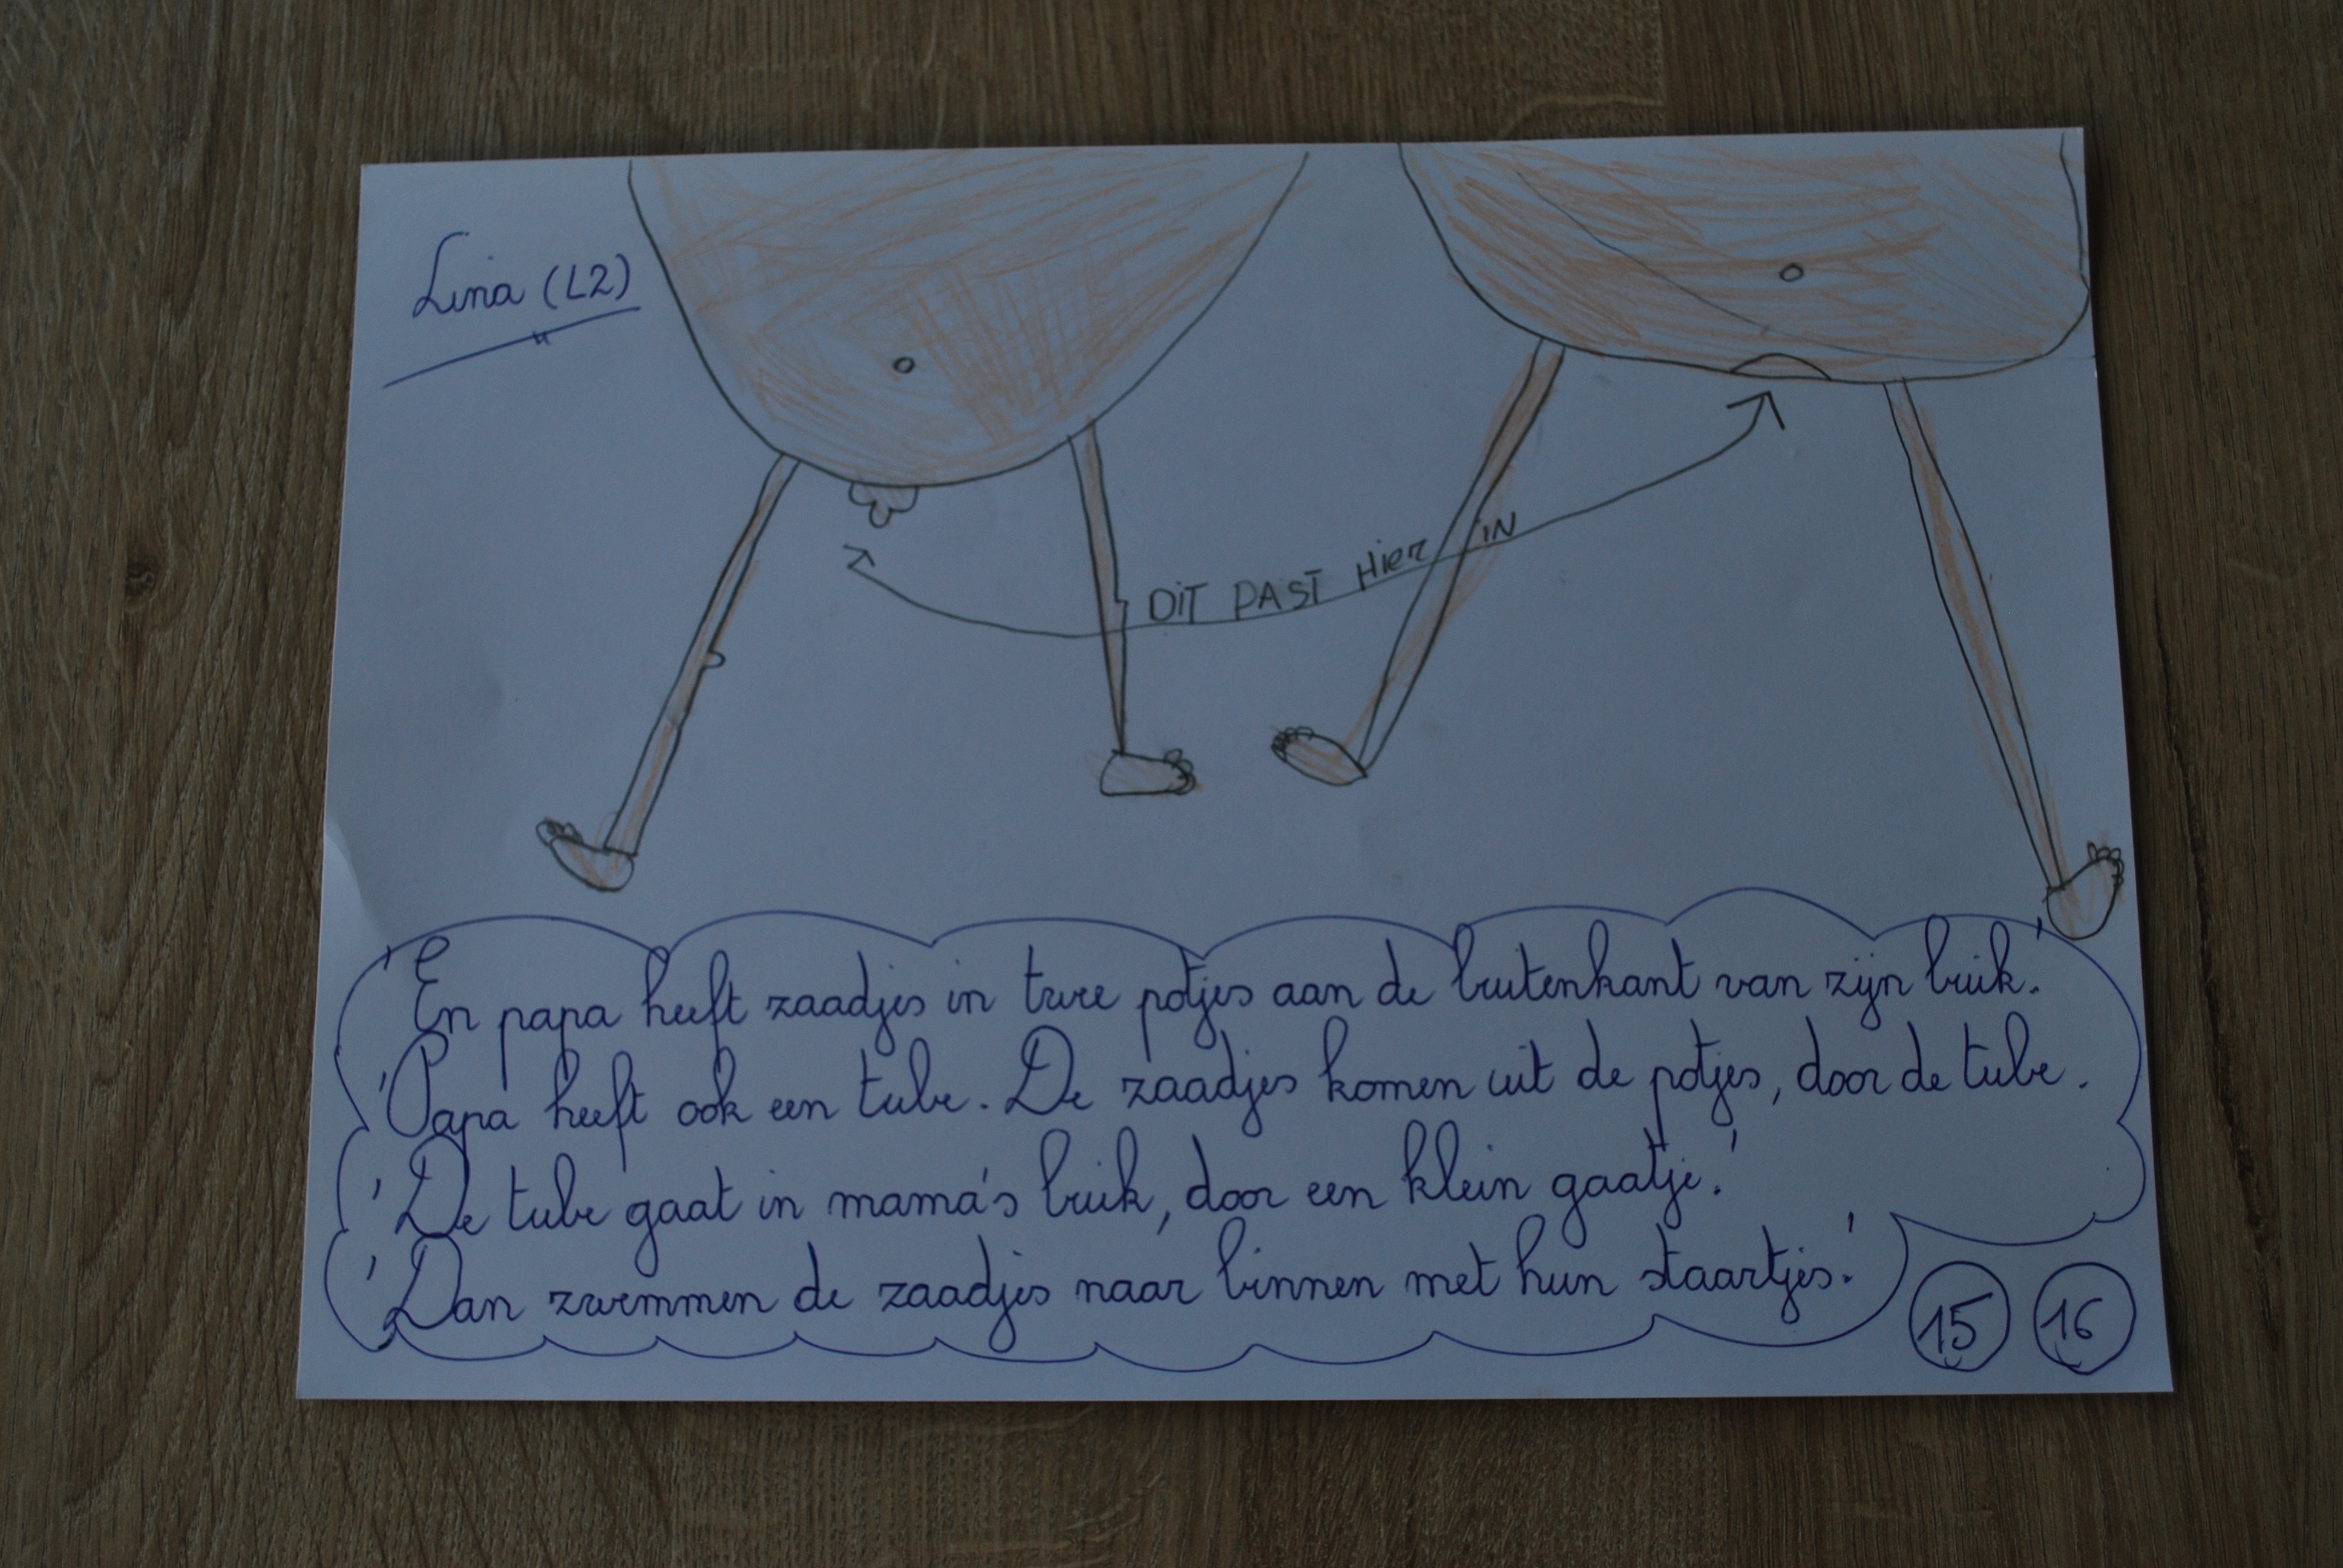 Lina (L2)
DIT PAST Hier IN
'En papa heeft zaadjes in twee potjes aan de buitenkant van zijn buik.'
'Papa heeft ook een tube. De zaadjes komen uit de potjes, door de tube.
'De tube gaat in mama's buik, door een klein gaatje.'
'Dan zwemmen de zaadjes naar binnen met hun staartjes.'
15 16